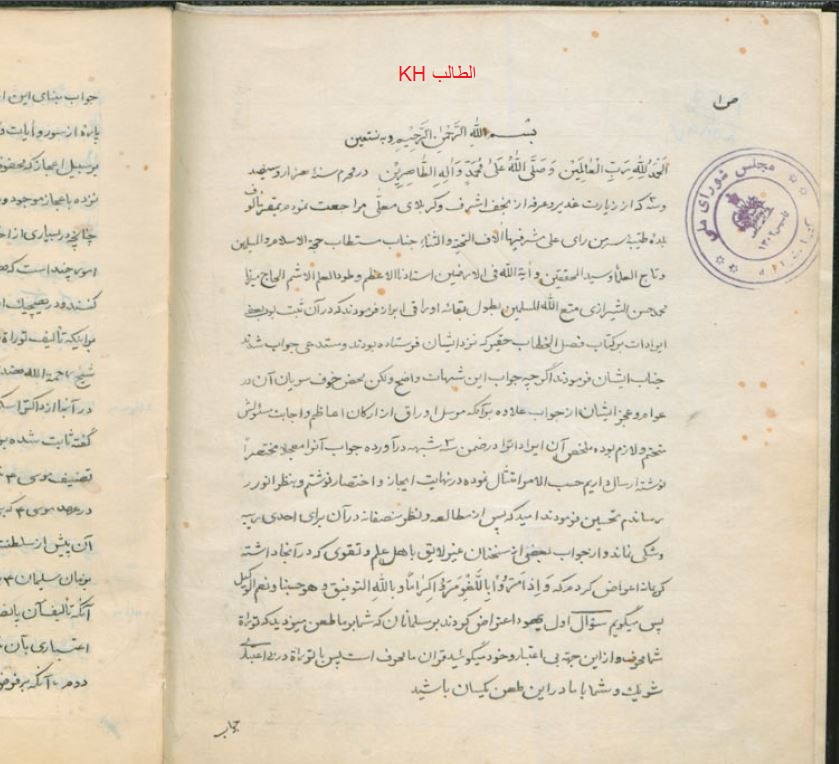 الطالب KH
ص ١
بسم الله الرحمن الرحيم وبه نستعين
الحمد لله رب العالمين وصلى الله على محمد وآله الطاهرين در محرم سنه هزار و سیصد
و سه که از زیارت غدیر و عرفه از نجف اشرف و کربلای معلی مراجعت نموده بمقر مألوف
بلده طیبه سر من رأی علی مشرفیها آلاف التحیة والثناء جناب مستطاب حجة الاسلام والمسلمین
و تاج العلماء و سید المحققین و آیة الله فی الارضین استاذنا الاعظم و طودنا العلم الاشم الحاج میرزا
محمد حسن الشیرازی متع الله المسلمین بطول بقائه اوراقی ابراز فرمودند که در آن ثبت بود بعض
ایرادات بر کتاب فصل الخطاب حقیر که نزد ایشان فرستاده بودند و مستدعی جواب شدند
جناب ایشان فرمودند اگر چه جواب این شبهات واضح ولکن بمحض خوف سریان آن در
عوام و عجز ایشان از جواب علاوه بر آنکه مرسل اوراق از ارکان اعاظم و اجابت مسئولش
متحتم و لازم بوده ملخص آن ایرادات را در ضمن سه شبهه در آورده جواب آنرا معجلا مختصراً
نوشته ارسال داریم حسب الامر امتثال نموده در نهایت ایجاز و اختصار نوشتم و بنظر انور
رساندم تحسین فرمودند امید که پس از مطالعه و نظر منصفانه در آن برای احدی ریب
و شکی نماند و از جواب بعضی از سخنان غیر لایق باهل علم و تقوی که در آنجا داشته
کریمانه اعراض کردم که و اذا مروا باللغو مروا کراما و بالله التوفیق و هو حسبنا و نعم الوکیل
پس میگویم سؤال اول یهود اعتراض کردند بر مسلمانان که شما بر ما طعن میزدید که توراة
شما محرف و از این جهة بی اعتبار و خود میگوئید قرآن ما محرف است پس با توراة در بی اعتباری
شریک و شما با ما در این طعن یکسان باشید
جواب
مجلس شورای ملی
جواب بنای این
پاره از سور و آیات
بر سبیل اعجاز که محفوظ
نوده باعجاز موجود و
چنانچه در بسیاری از
امور چند است که
کنند و در
بر اینکه تألیف توراة
شیخ رحمة الله
در آنجا از
گفته ثابت شده
تصنیف موسی
در عهد موسی
آن پیش از سلطنت
بزمان سلیمان
آنکه تألیف آن
اعتباری بآن
دوم آنکه بر فرض